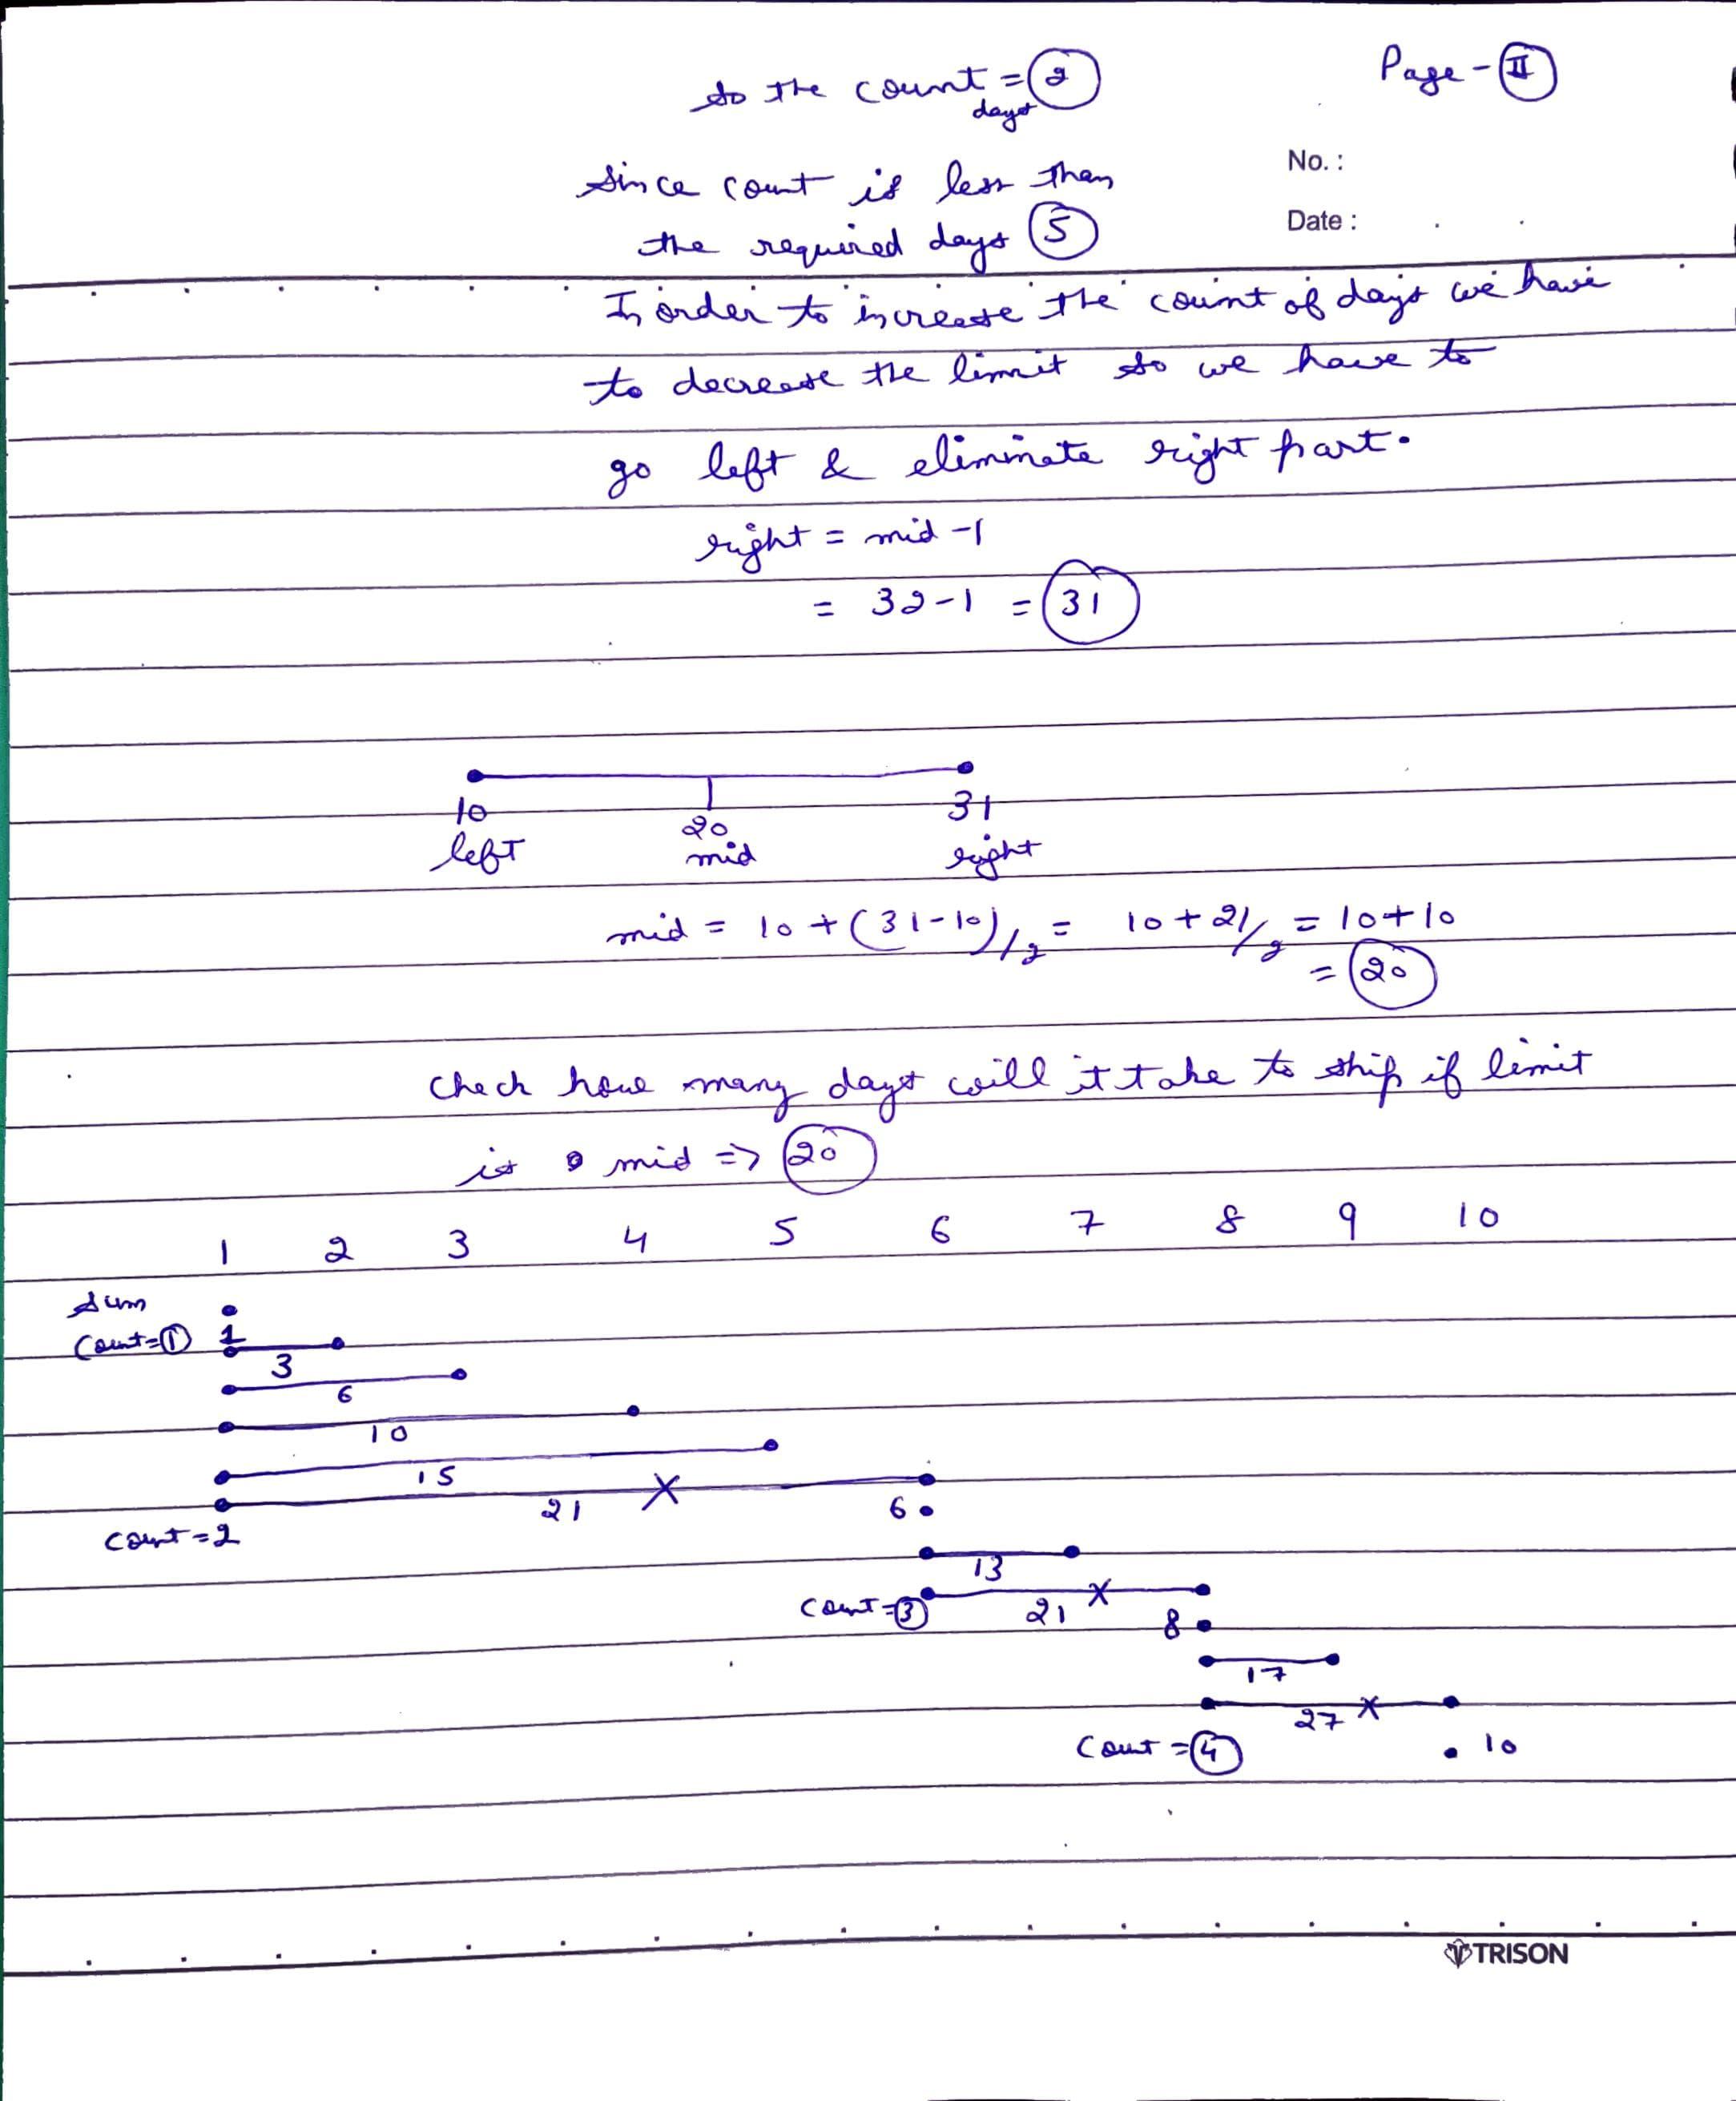 so the count = 2
days
Page - II
since count is less than
No. :
the required days 5
Date :
In order to increase the count of days we have
to decrease the limit so we have to
go left & eliminate right part.
right = mid - 1
= 32 - 1 = 31
10 20 31
left mid right
mid = 10 + (31-10)/2 = 10 + 21/2 = 10+10
= 20
check how many days will it take to ship if limit
is mid => 20
1 2 3 4 5 6 7 8 9 10
sum
count = 1 1
3
6
10
15
21 X 6
count = 2
13
count = 3 21 X 8
17
27 X
count = 4 10
TRISON